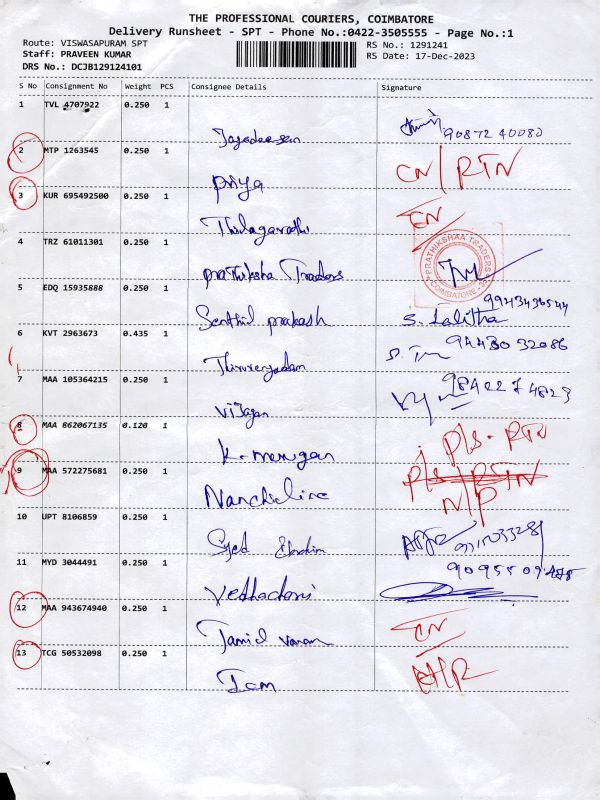 THE PROFESSIONAL COURIERS, COIMBATORE
Delivery Runsheet - SPT - Phone No.:0422-3505555 - Page No.:1
Route: VISWASAPURAM SPT
RS No.: 1291241
Staff: PRAVEEN KUMAR
RS Date: 17-Dec-2023
DRS No.: DCJB129124101
S No Consignment No Weight PCS Consignee Details Signature
1 TVL 4707922 0.250 1
90872 40080
2 MTP 1263545 0.250 1
Priya CN/RTN
3 KUR 695492500 0.250 1
Thilagavathi CN
4 TRZ 61011301 0.250 1
Prathiksha Traders
PRATHIKSHAA TRADERS
COIMBATORE
5 EDQ 15935888 0.250 1
Senthil prakash S. Lalitha
6 KVT 2963673 0.435 1
94430 32086
7 MAA 105364215 0.250 1
Vijayan 984227 4823
8 MAA 862067135 0.120 1
K. murugan Pls. RTN
9 MAA 572275681 0.250 1
Pls RTN
N/P
10 UPT 8106859 0.250 1
Syed Ibrahim
11 MYD 3044491 0.250 1
12 MAA 943674940 0.250 1
Tamil vanan CN
13 TCG 50532098 0.250 1